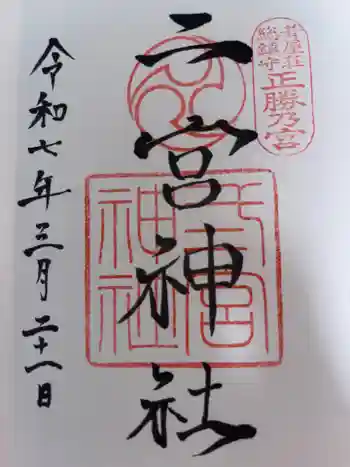 葺屋荘
総鎮守
正勝乃宮
二宮神社
神社
令和七年三月二十一日